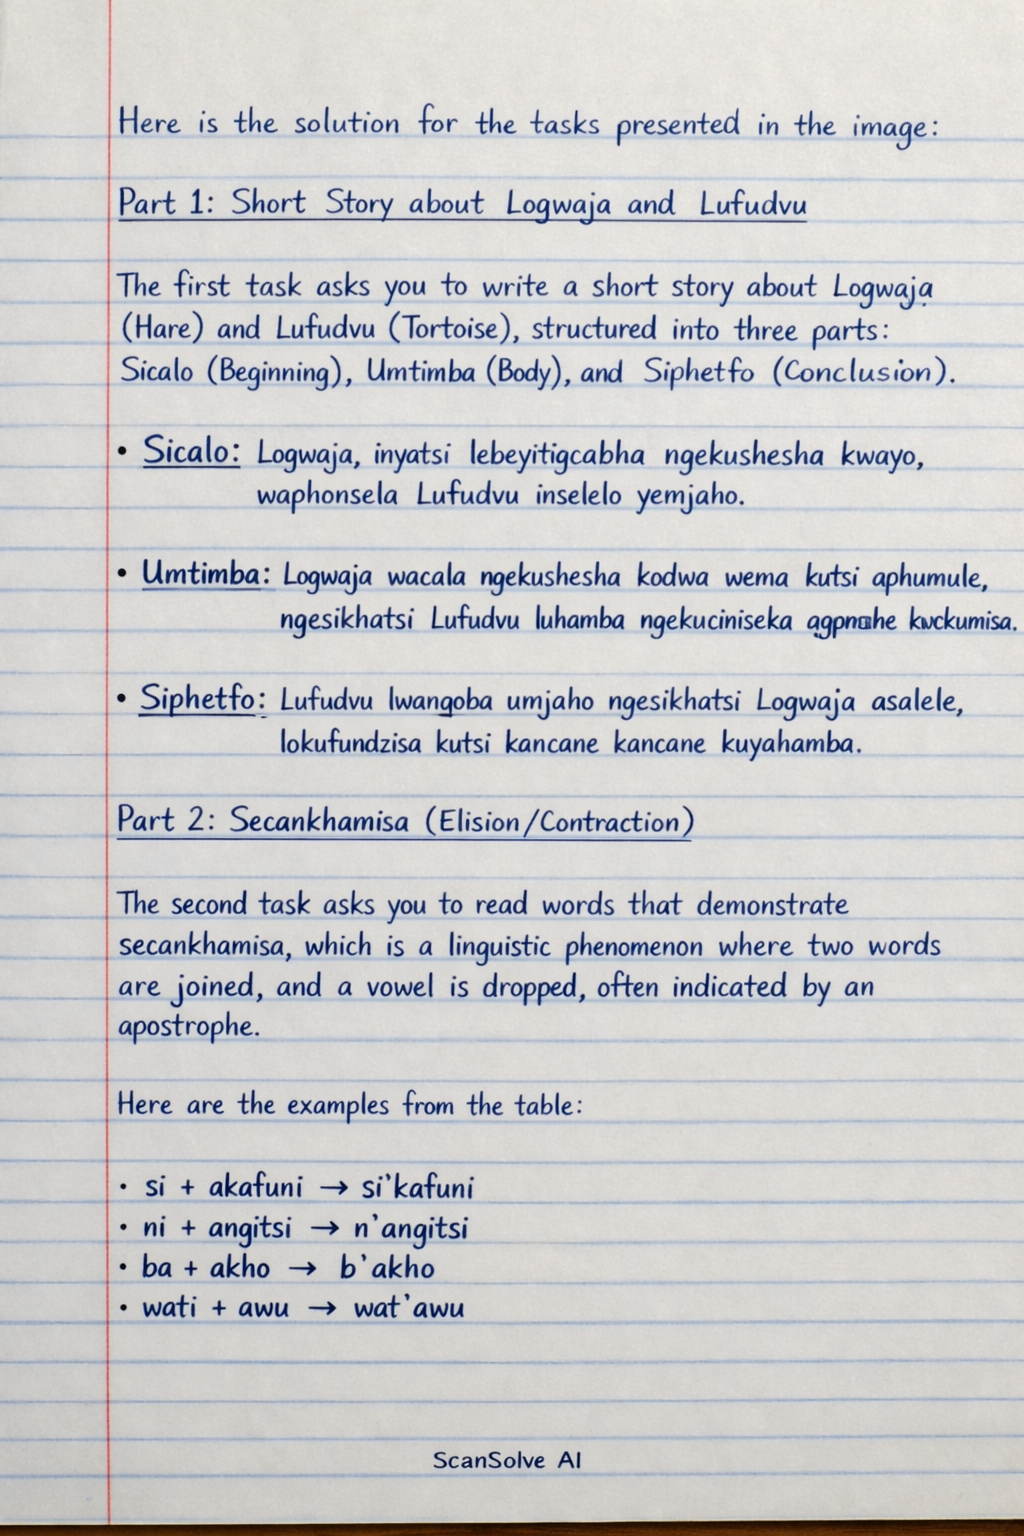 Here is the solution for the tasks presented in the image:
Part 1: Short Story about Logwaja and Lufudvu
The first task asks you to write a short story about Logwaja
(Hare) and Lufudvu (Tortoise), structured into three parts:
Sicalo (Beginning), Umtimba (Body), and Siphetfo (Conclusion).
• Sicalo: Logwaja, inyatsi lebeyitigcabha ngekushesha kwayo,
waphonsela Lufudvu inselelo yemjaho.
• Umtimba: Logwaja wacala ngekushesha kodwa wema kutsi aphumule,
ngesikhatsi Lufudvu luhamba ngekuciniseka
• Siphetfo: Lufudvu lwangoba umjaho ngesikhatsi Logwaja asalele,
lokufundzisa kutsi kancane kancane kuyahamba.
Part 2: Secankhamisa (Elision/Contraction)
The second task asks you to read words that demonstrate
secankhamisa, which is a linguistic phenomenon where two words
are joined, and a vowel is dropped, often indicated by an
apostrophe.
Here are the examples from the table:
• si + akafuni → si'kafuni
• ni + angitsi → n'angitsi
• ba + akho → b'akho
• wati + awu → wat'awu
ScanSolve AI